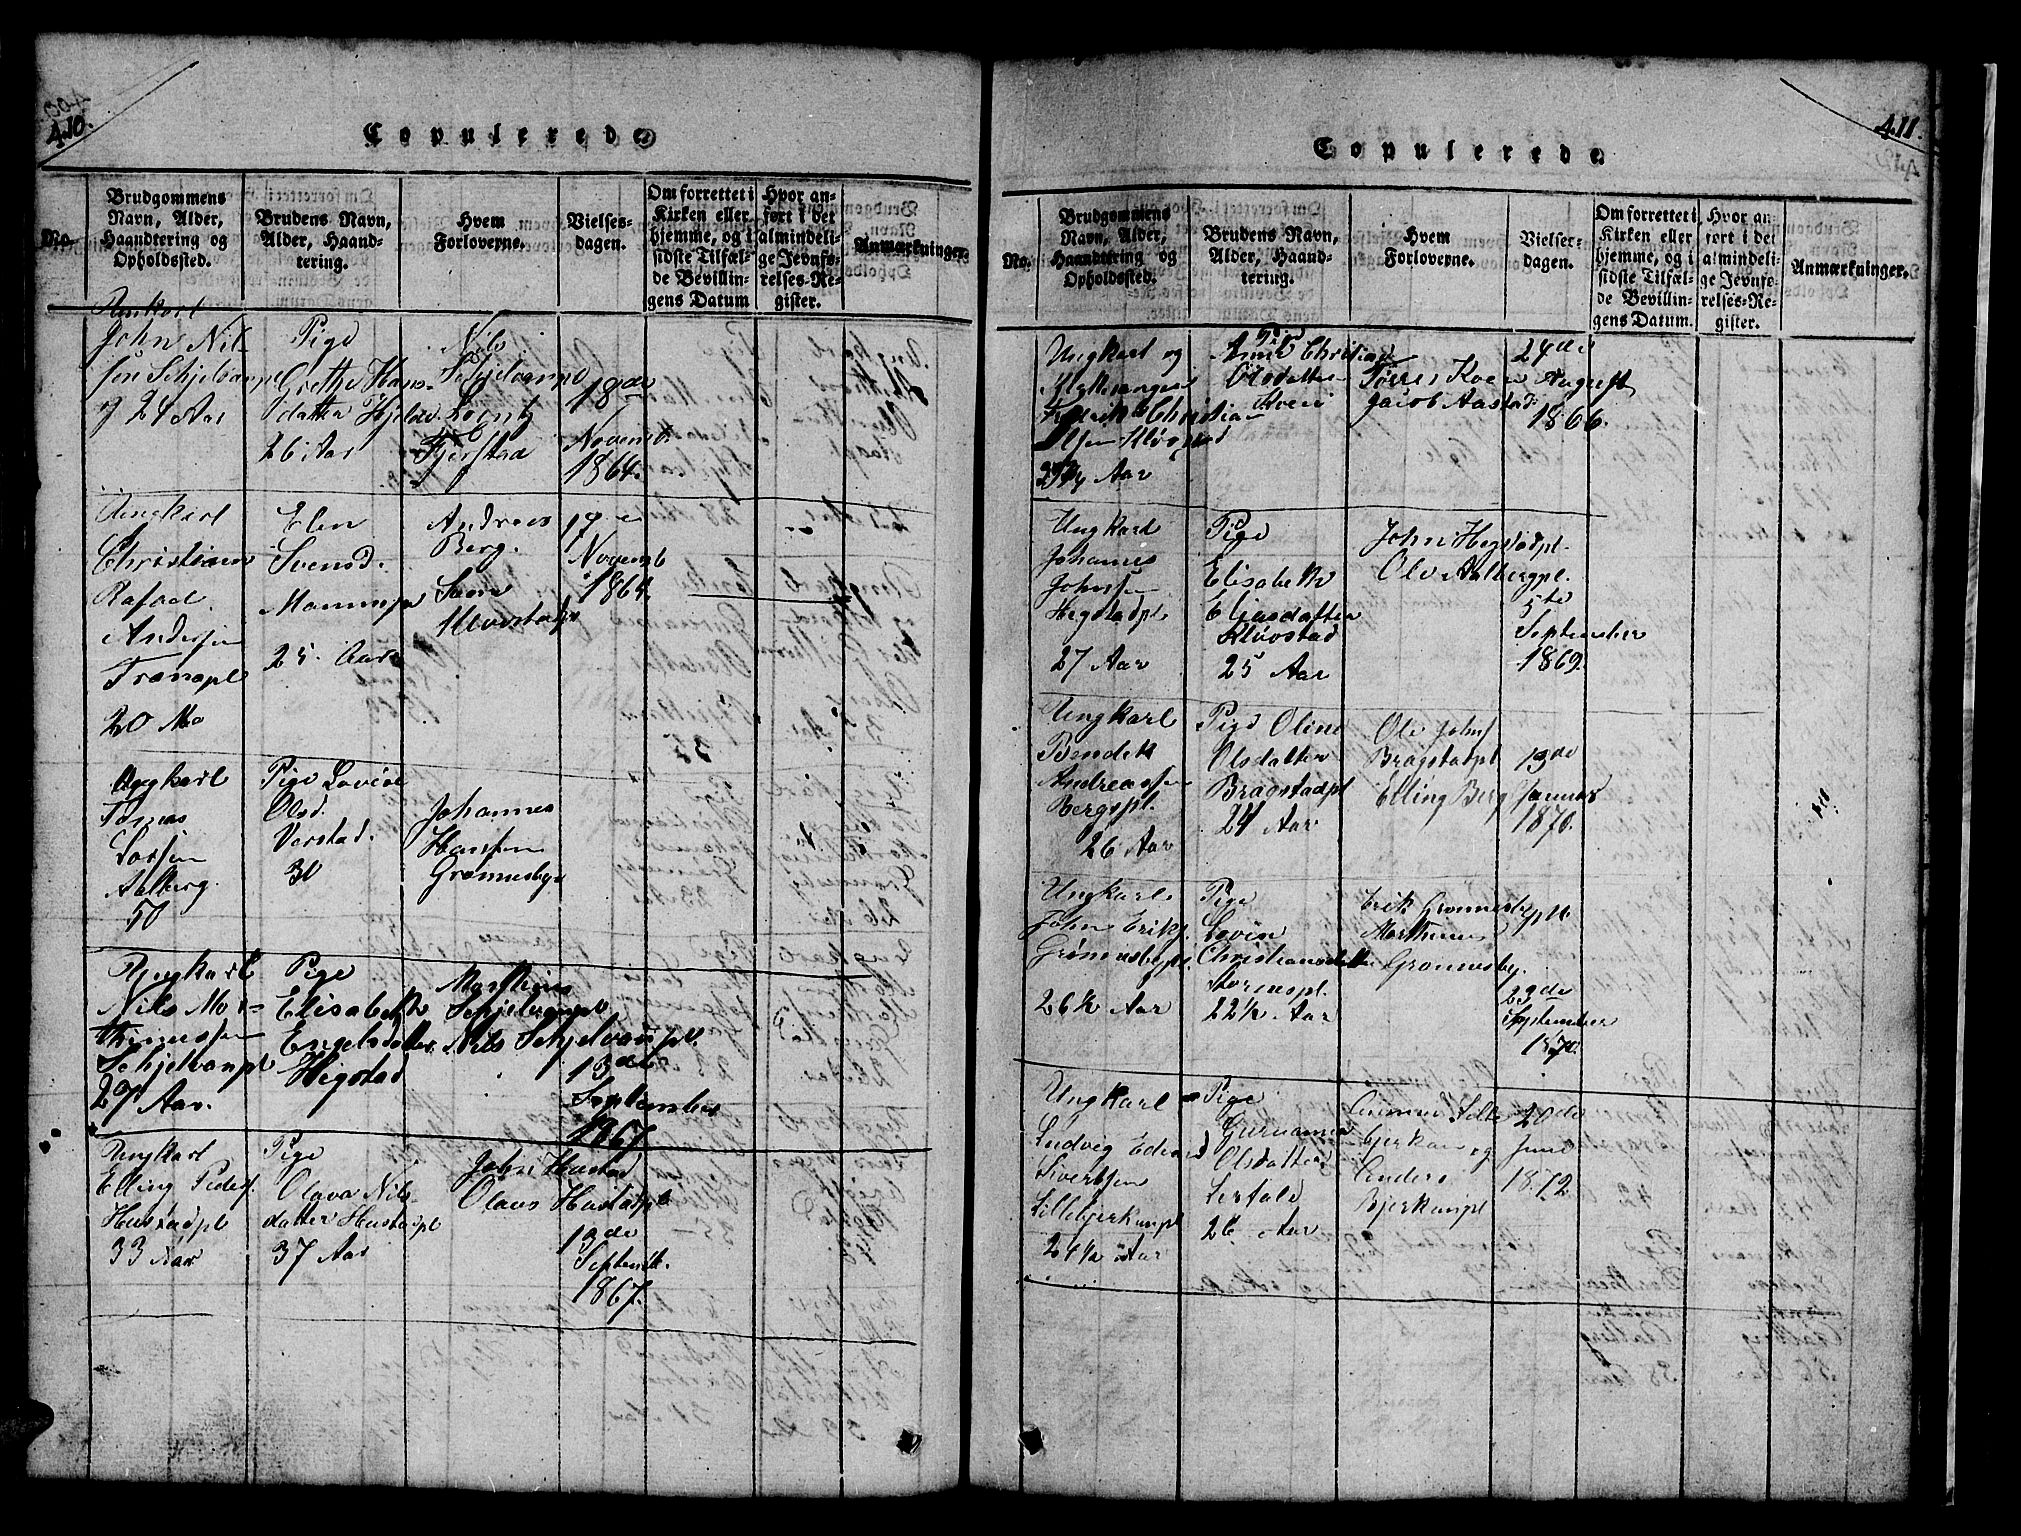 410.
Copulerede
No.
Brudgommens
Navn, Alder,
Haandtering og
Opholdssted.
Brudens Navn,
Alder, Haand-
tering.
Hvem
Forloverne.
Vielses-
dagen.
Om forrettet i
Kirken eller
hjemme, og i
sidste Tilfæl-
de Bevillin-
gens Datum
Hvor an-
ført i det
almindeli-
ge Jevnfø-
relses-Re-
gister.
Anmærkninger.
Ungkarl
John Nil-
sen Schjelvanpl
24 Aar
Pige
Grethe Hans-
datter
26 Aar
Nils
Schjelvanpl
Lorentz
Fjerstad
18de
Novemb.
1864.
Ungkarl
Christian
Rafael
Andersen
Tranapl
20
Elen
Svensd.
25. Aar
Andreas
Berg.
17de
Novemb
1864.
Ungkarl
Tomas
Larsen
Aalberg.
50
Pige Lovise
Olsd.
Verstad.
30
Johannes
Hansen
Grønnesbye
Ungkarl
Nils Mor-
thinussen
Schjelvanpl
29 Aar.
Pige
Elisabeth
Engelsdatter
Hegstad
Morthinus
Schjelvanpl
Nils Schjelvanpl
13de
September
1867
Ungkarl
Elling Peders.
Hustadpl
33 Aar
Pige
Olava Nils-
datter Hustadpl
37 Aar
John Hustad
Olaus Hustadpl
13de
Septemb.
1867.
411.
Copulerede
No.
Brudgommens
Navn, Alder,
Haandtering og
Opholdssted.
Brudens Navn,
Alder, Haand-
tering.
Hvem
Forloverne.
Vielses-
dagen.
Om forrettet i
Kirken eller
hjemme, og i
sidste Tilfæl-
de Bevillin-
gens Datum.
Hvor an-
ført i det
almindeli-
ge Jevnfø-
relses-Re-
gister.
Anmærkninger.
Ungkarl og
Fredrik Christian
Olsen
Aar
Pige
Anne Christian
Olsdatter
Kven
Tørres Kven
Jacob Aastad
24de
August
1866.
Ungkarl
Johannes
Johnsen
Hegstadpl
27 Aar
Pige
Elisabeth
Eliasdatter
Kluvstad
25 Aar
John Hegstadpl.
Ole Aalbergpl.
5te
September
1869.
Ungkarl
Bendik
Andreassen
Bergspl.
26 Aar
Pige Oline
Olsdatter
Bragstadpl
24 Aar
Ole Johns
Bragstadpl
Elling Berg
13de
Januar
1870.
Ungkarl
John Eriks.
Grønnesbypl.
26½ Aar
Pige
Lovise
Christiansdatter
Storenspl.
22½ Aar
Erik Grønnesbypl.
Morthinus
Grønnesby.
23de
September
1870.
Ungkarl
Ludvig Edvard
Sivertsen
Lillebjerkanpl
24½ Aar
Pige
Gurunanna
Olsdatter
Lerfald
26 Aar
Gunnar Lille
bjerkan og
Anders
Bjerkanpl
20de
Juni
1872